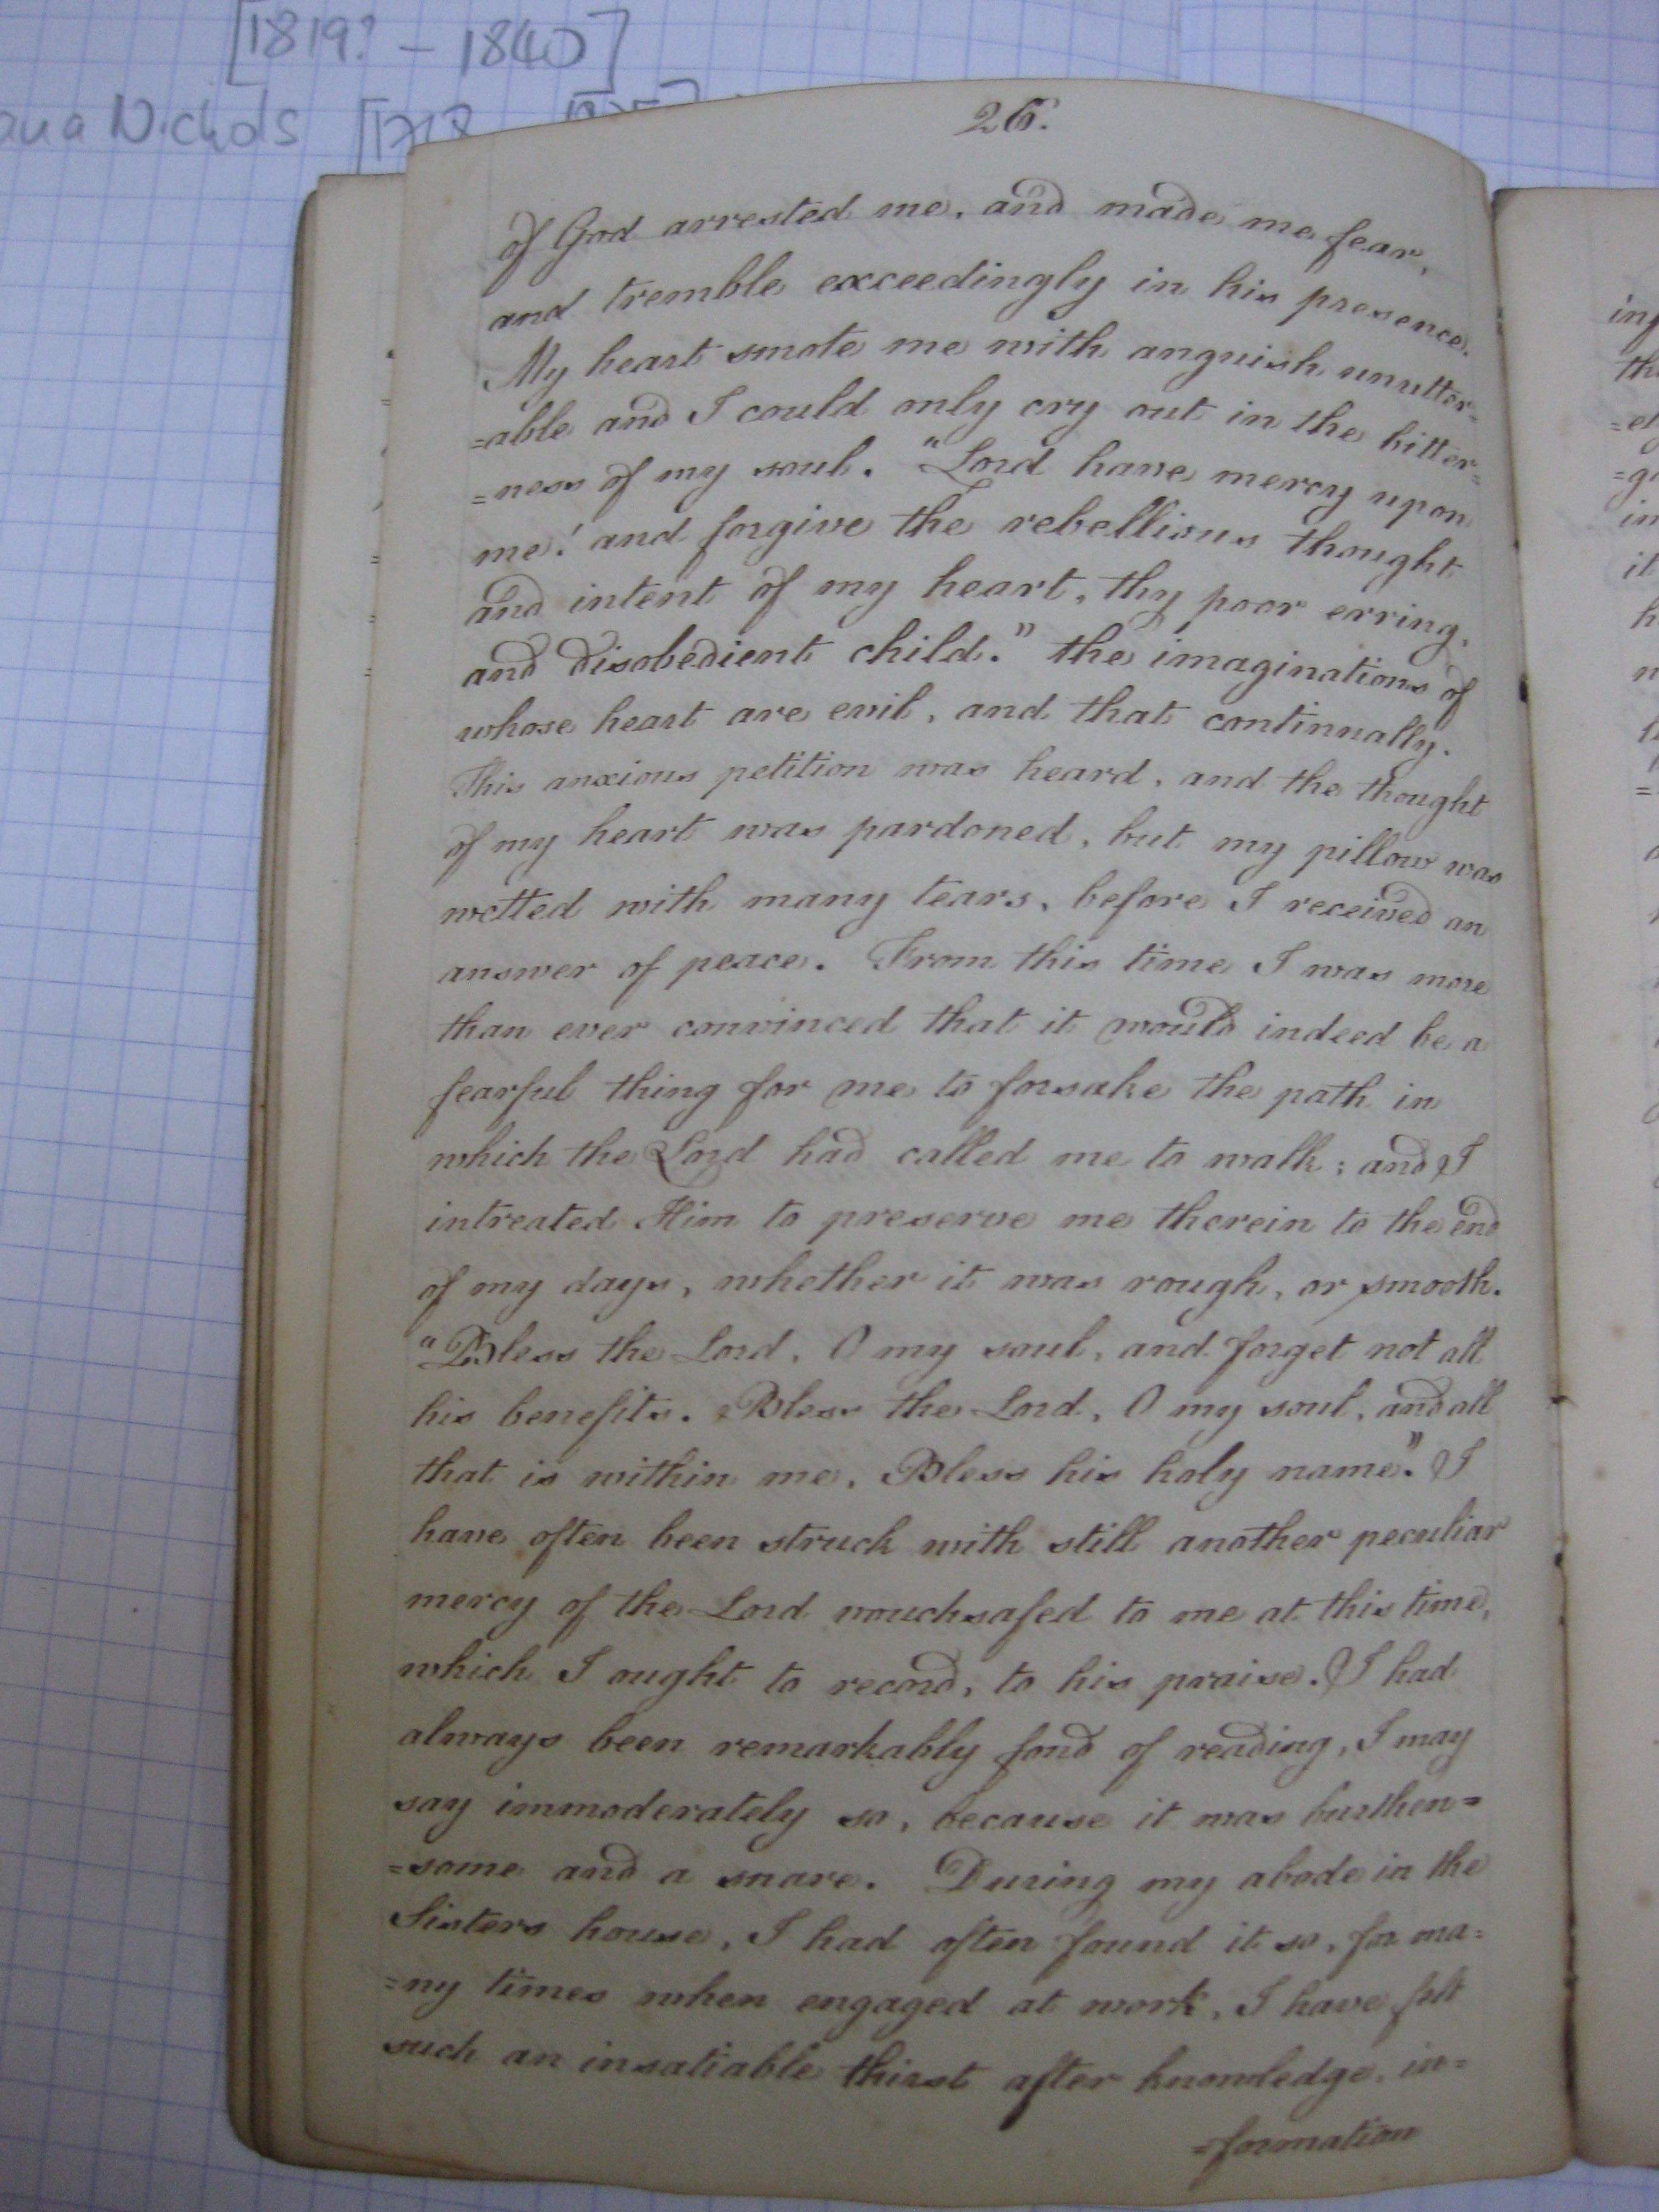 [1819? – 1840]
Nichols
26.
of God arrested me, and made me fear,
and tremble exceedingly in his presence.
My heart smote me with anguish unutter=
=able and I could only cry out in the bitter=
=ness of my soul. "Lord have mercy upon
me! and forgive the rebellious thought
and intent of my heart, thy poor erring,
and disobedient child." the imaginations of
whose heart are evil, and that continually.
This anxious petition was heard, and the thought
of my heart was pardoned, but my pillow was
wetted with many tears, before I received an
answer of peace. From this time I was more
than ever convinced that it would indeed be a
fearful thing for me to forsake the path in
which the Lord had called me to walk; and I
intreated Him to preserve me therein to the end
of my days, whether it was rough, or smooth.
"Bless the Lord, O my soul, and forget not all
his benefits. Bless the Lord, O my soul, and all
that is within me, Bless his holy name". I
have often been struck with still another peculiar
mercy of the Lord vouchsafed to me at this time,
which I ought to record, to his praise. I had
always been remarkably fond of reading, I may
say immoderately so, because it was burthen=
=some and a snare. During my abode in the
Sisters house, I had often found it so, for ma=
=ny times when engaged at work, I have felt
such an insatiable thirst after knowledge, in=
=formation
it